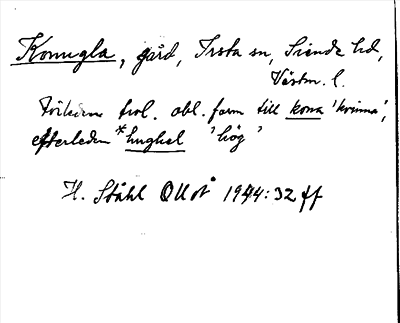 Konugla, gård, Irsta sn, Siende hd,
Västm. l.
Förleden trol. obl. form till kona 'kvinna',
efterleden *hughel 'hög'
H. Ståhl OUoÅ 1944:32 ff